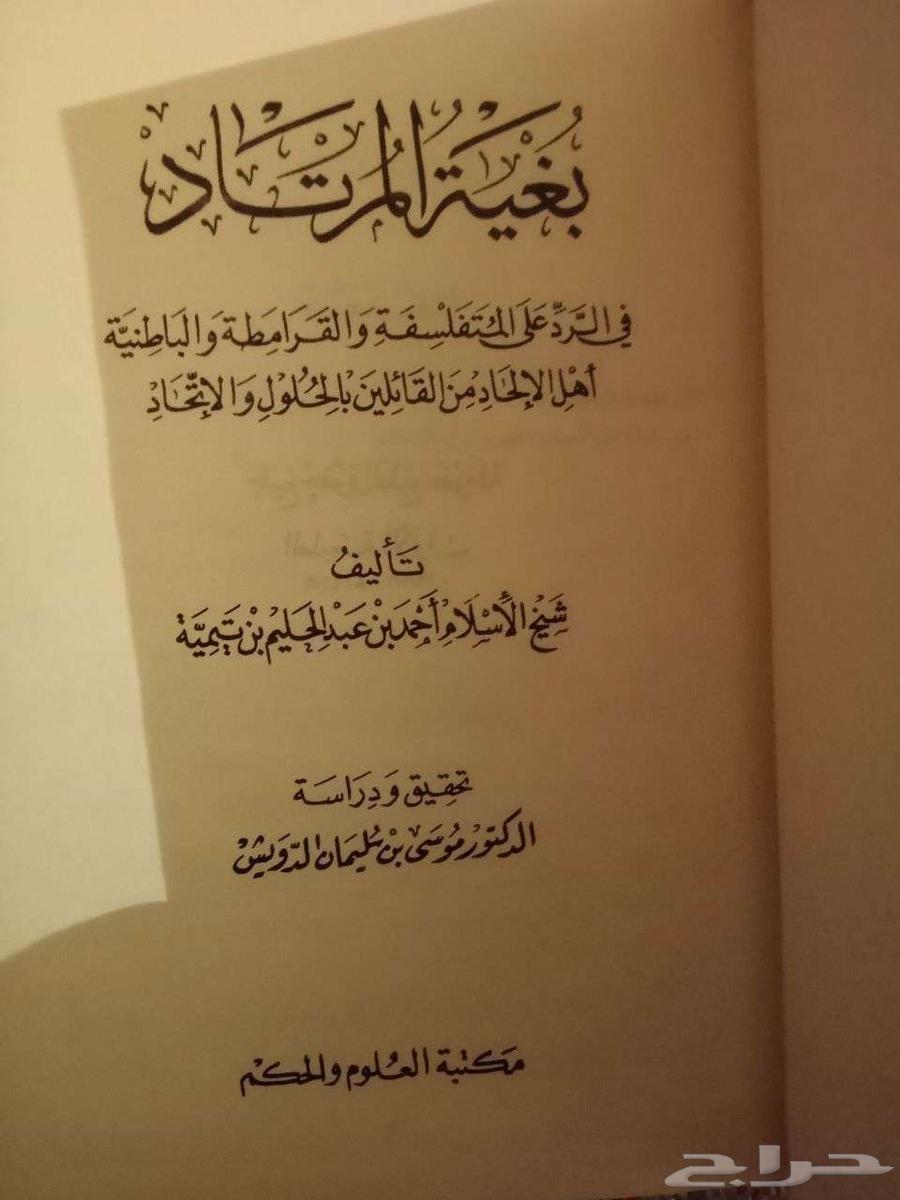 بُغْيَةُ المُرْتَاد
في الرَّدِّ عَلَى المُتَفَلْسِفَةِ وَالقَرَامِطَةِ وَالبَاطِنِيَّة
أَهْلِ الإِلحَادِ مِنَ القَائِلِينَ بِالحُلُولِ وَالإِتِّحَادِ
تَأليفُ
شَيْخِ الأِسْلَامِ أَحْمَدَ بْنِ عَبْدِ الحَلِيمِ بْنِ تَيْمِيَّة
تحقِيق وَدِرَاسَة
الدكتور مُوسَى بْن سُلَيمَان الدّوَيشْ
مكتبة العُلوم والحكم
حراج